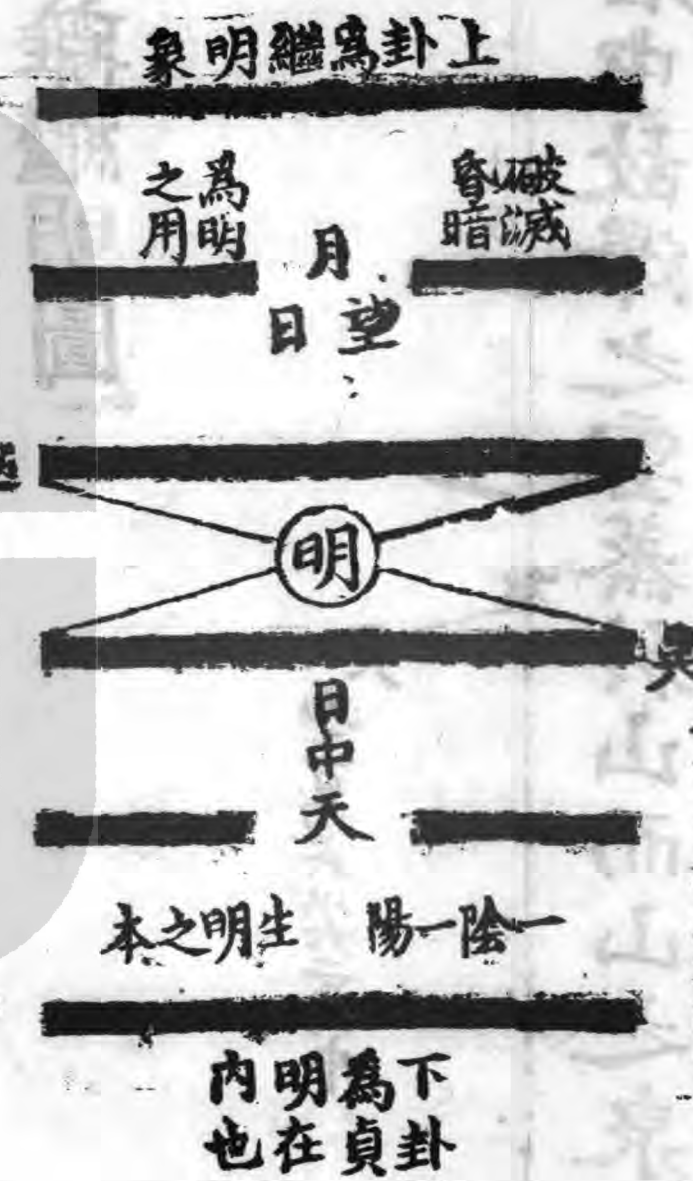 上卦爲繼明象
破滅
昏暗
爲明
之用
月
望日
明
日中天
一陰一陽
生明之本
下卦
爲貞
明在
内也